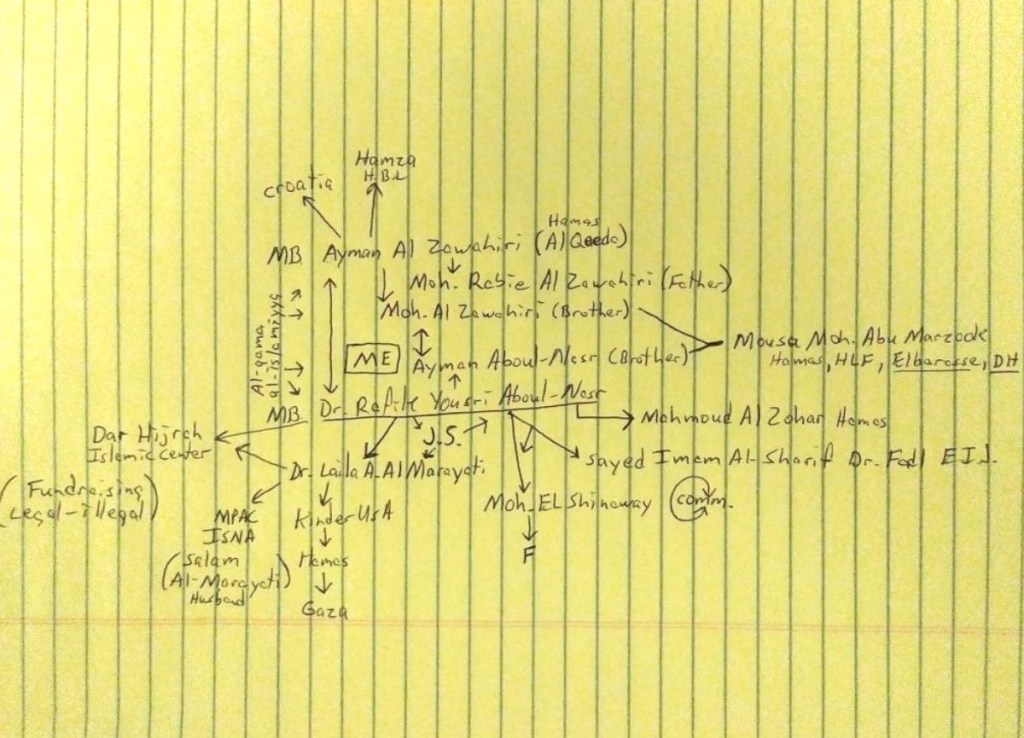 Hamza
H.B.L
croatia
Hamas
MB Ayman Al Zawahiri (Al Qaeda)
Moh. Rabie Al Zawahiri (Father)
Moh. Al Zawahiri (Brother)
Al-gama
al-islamiyya
Mousa Moh. Abu Marzook
Hamas, HLF, Elbarasse, DH
ME
Ayman Aboul-Nasr (Brother)
MB Dr. Rafik Yousri Aboul-Nasr
Mahmoud Al Zahar Hamas
Dar Hijrah
Islamic center
J.S.
Dr. Laila A. Al Marayati
sayed Imam Al-Sharif Dr. Fadl EIJ.
(Fundraising
Legal-illegal)
MPAC
ISNA
Kinder UsA
Moh. EL Shinaway
comm.
(Salam
Al-Marayati)
Husband
Hamas
F
Gaza